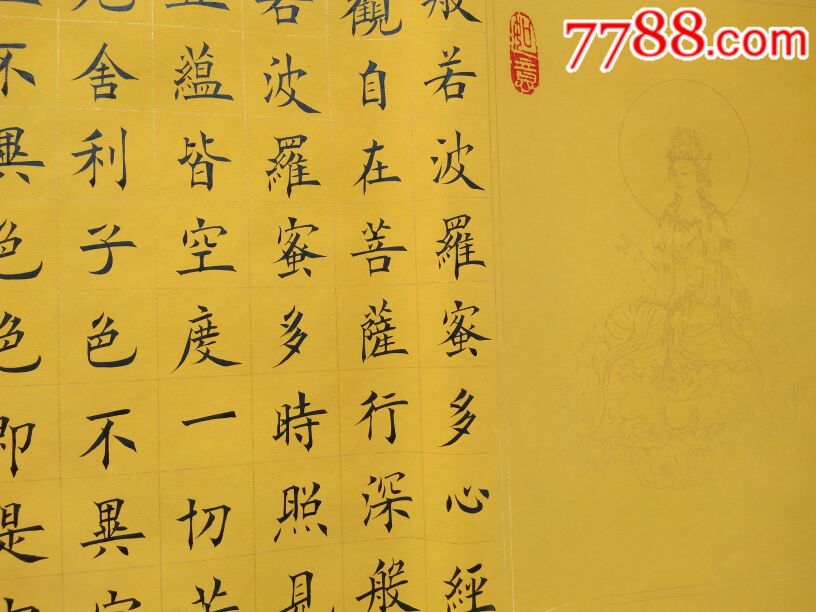 7788.com
如意
般若波羅蜜多心經
觀自在菩薩行深般
若波羅蜜多時照見
五蘊皆空度一切苦
厄舍利子色不異空
不異色色即是